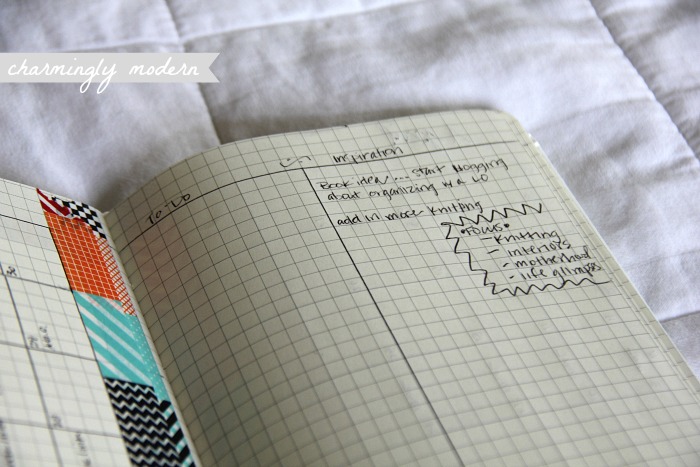 charmingly modern
To Do
inspiration
Book idea/... start blogging
about organizing w a LO
add in more knitting
•FOCUS•
- knitting
- interiors
- motherhood
- life glimpses